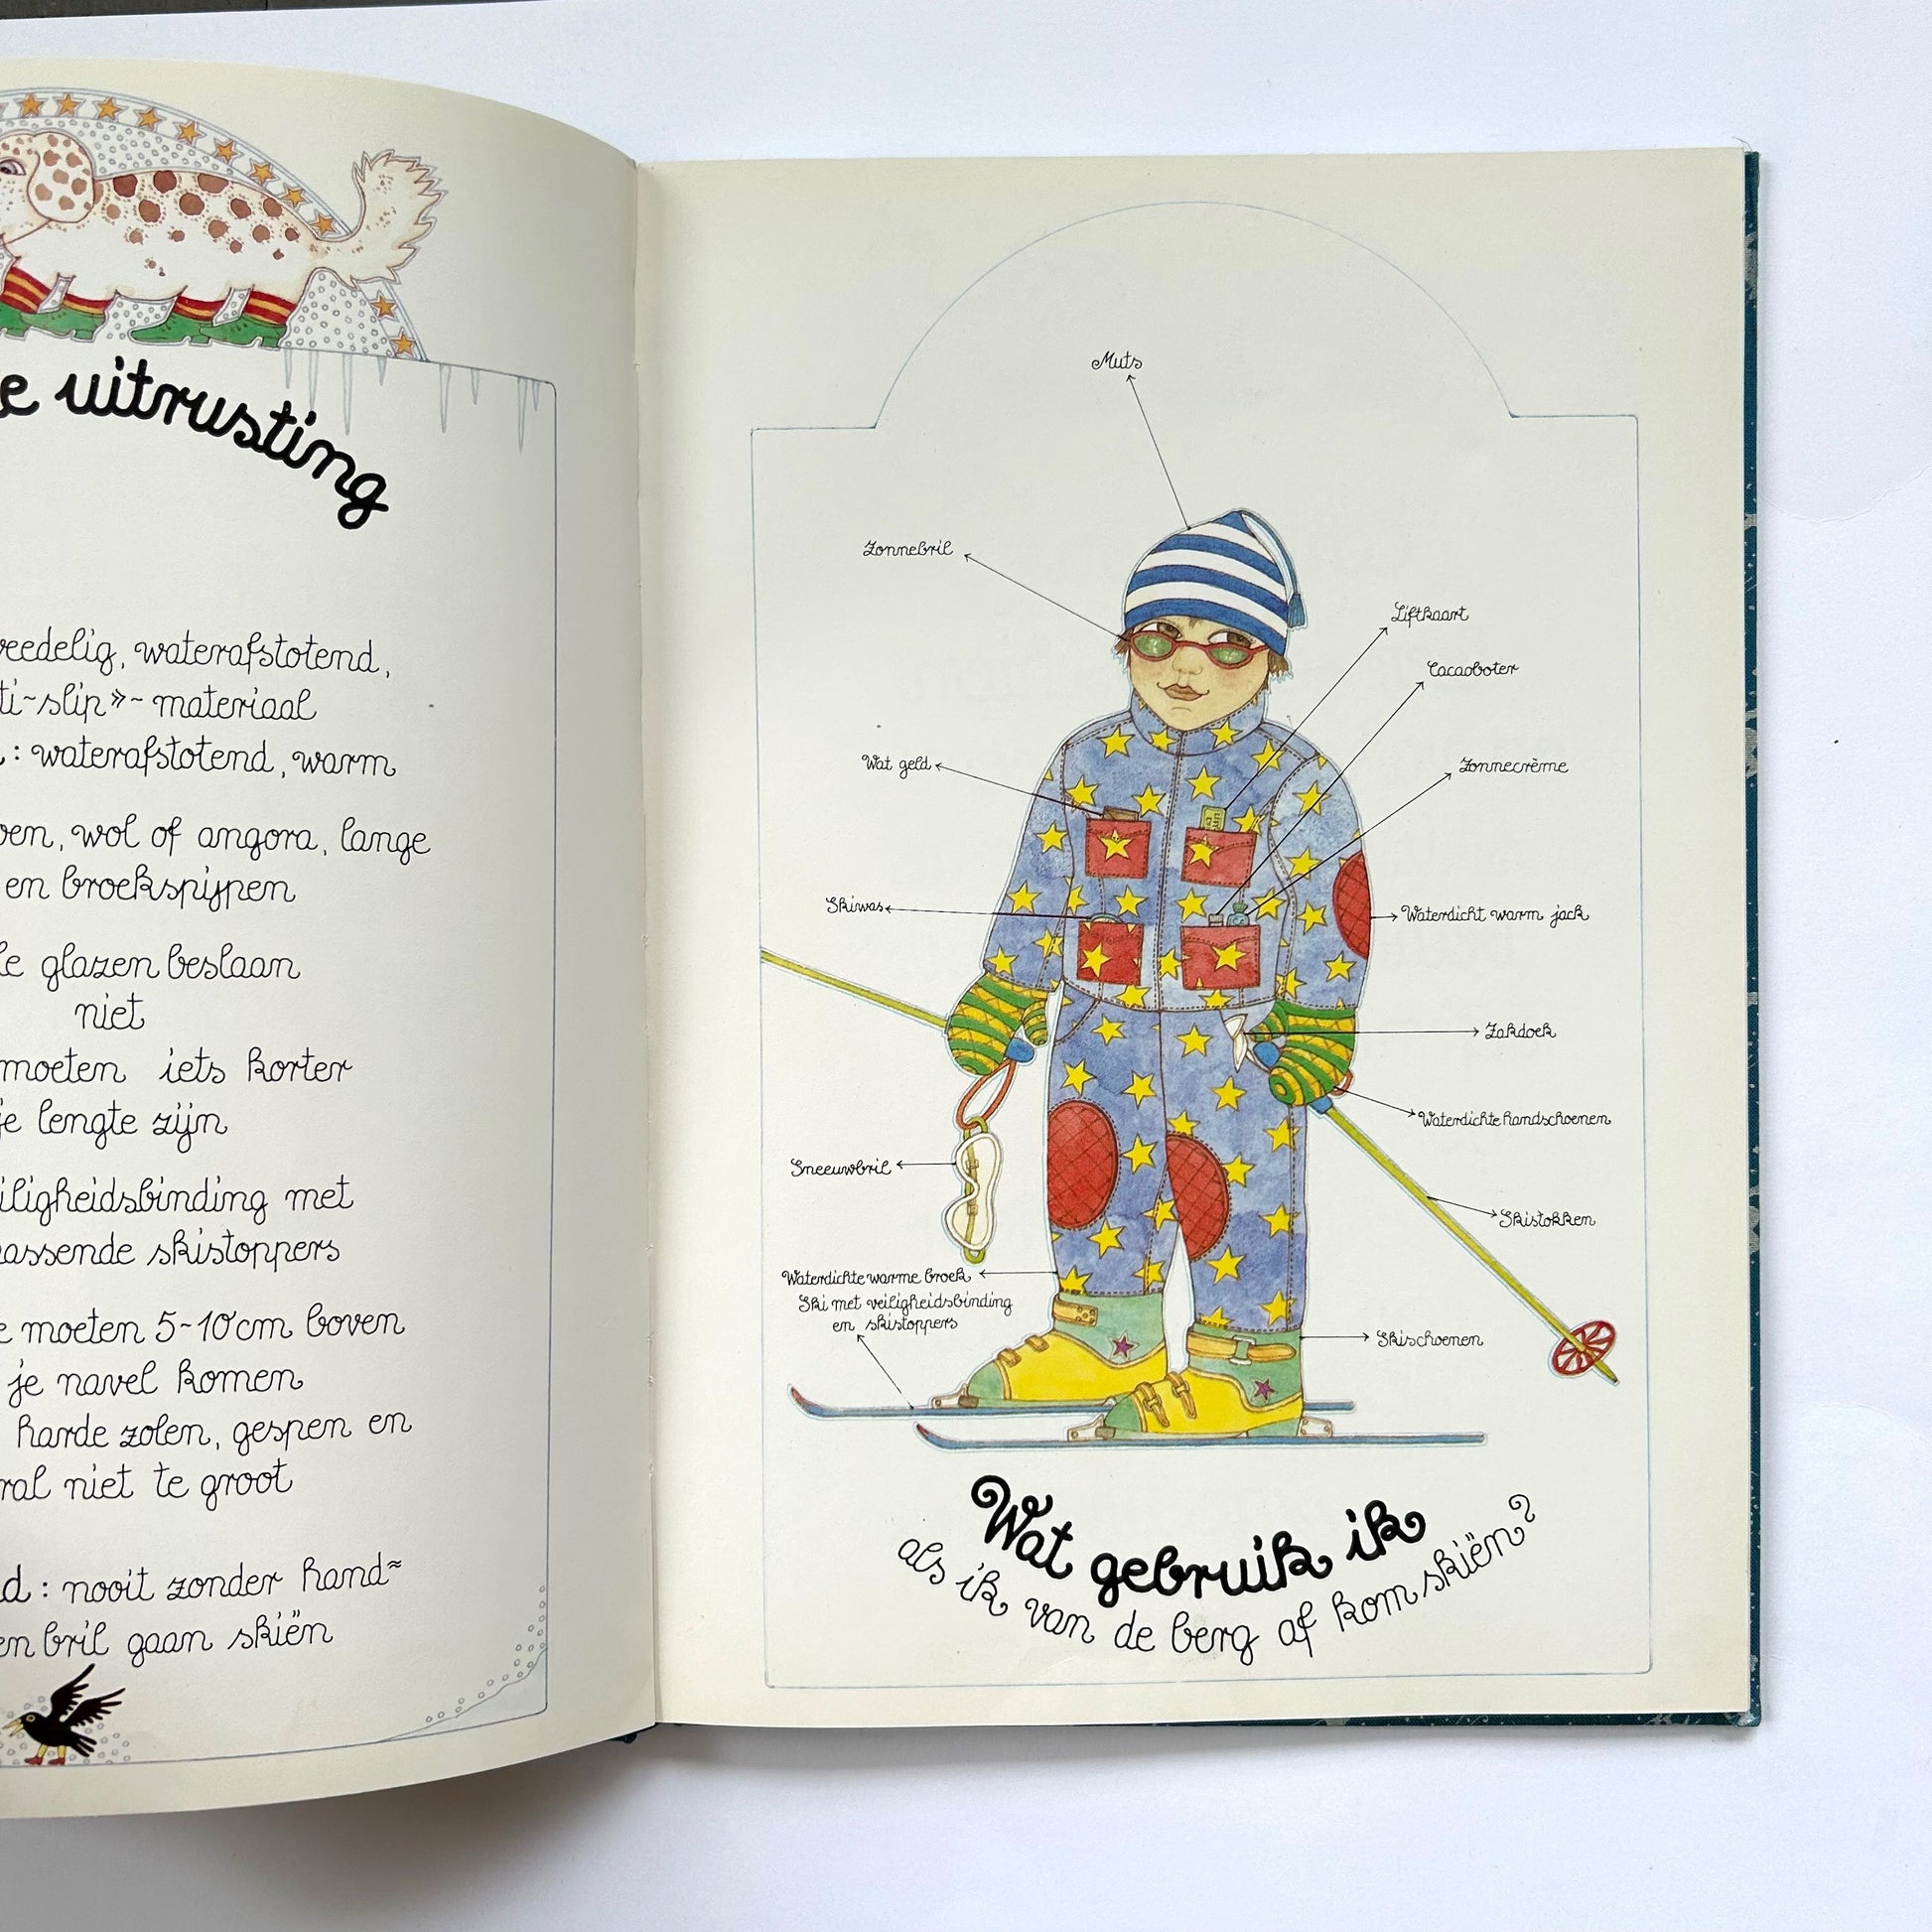 uitrusting
waterafstotend,
slip»~materiaal
: waterafstotend, warm
wol of angora, lange
en broekspijpen
glazen beslaan
niet
moeten iets korter
je lengte zijn
met
skistoppers
moeten 5~10cm boven
je navel komen
harde zolen, gespen en
niet te groot
: nooit zonder hand≈
bril gaan skiën
Muts
Zonnebril
Liftkaart
Cacaoboter
Wat geld
Zonnecrème
Skiwas
Waterdicht warm jack
Zakdoek
Waterdichte handschoenen
Sneeuwbril
Skistokken
Waterdichte warme broek
Ski met veiligheidsbinding
en skistoppers
Skischoenen
Wat gebruik ik
als ik van de berg af kom skiën?